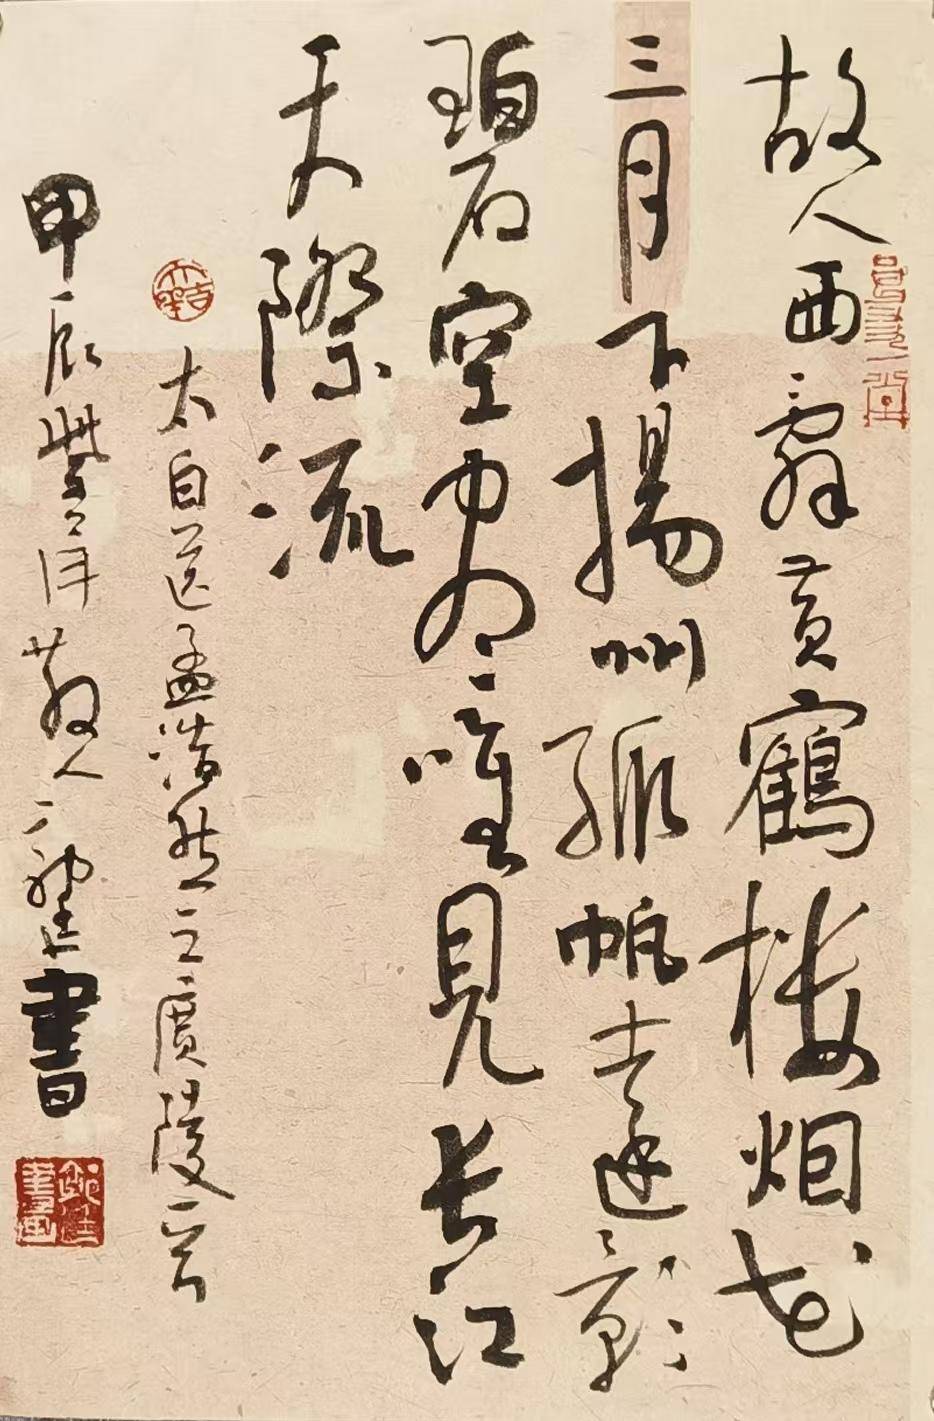 故人西辭黄鶴樓烟花
三月下揚州孤帆遠影
碧空盡唯見長江
天際流
太白送孟浩然之廣陵一首
甲辰散人書